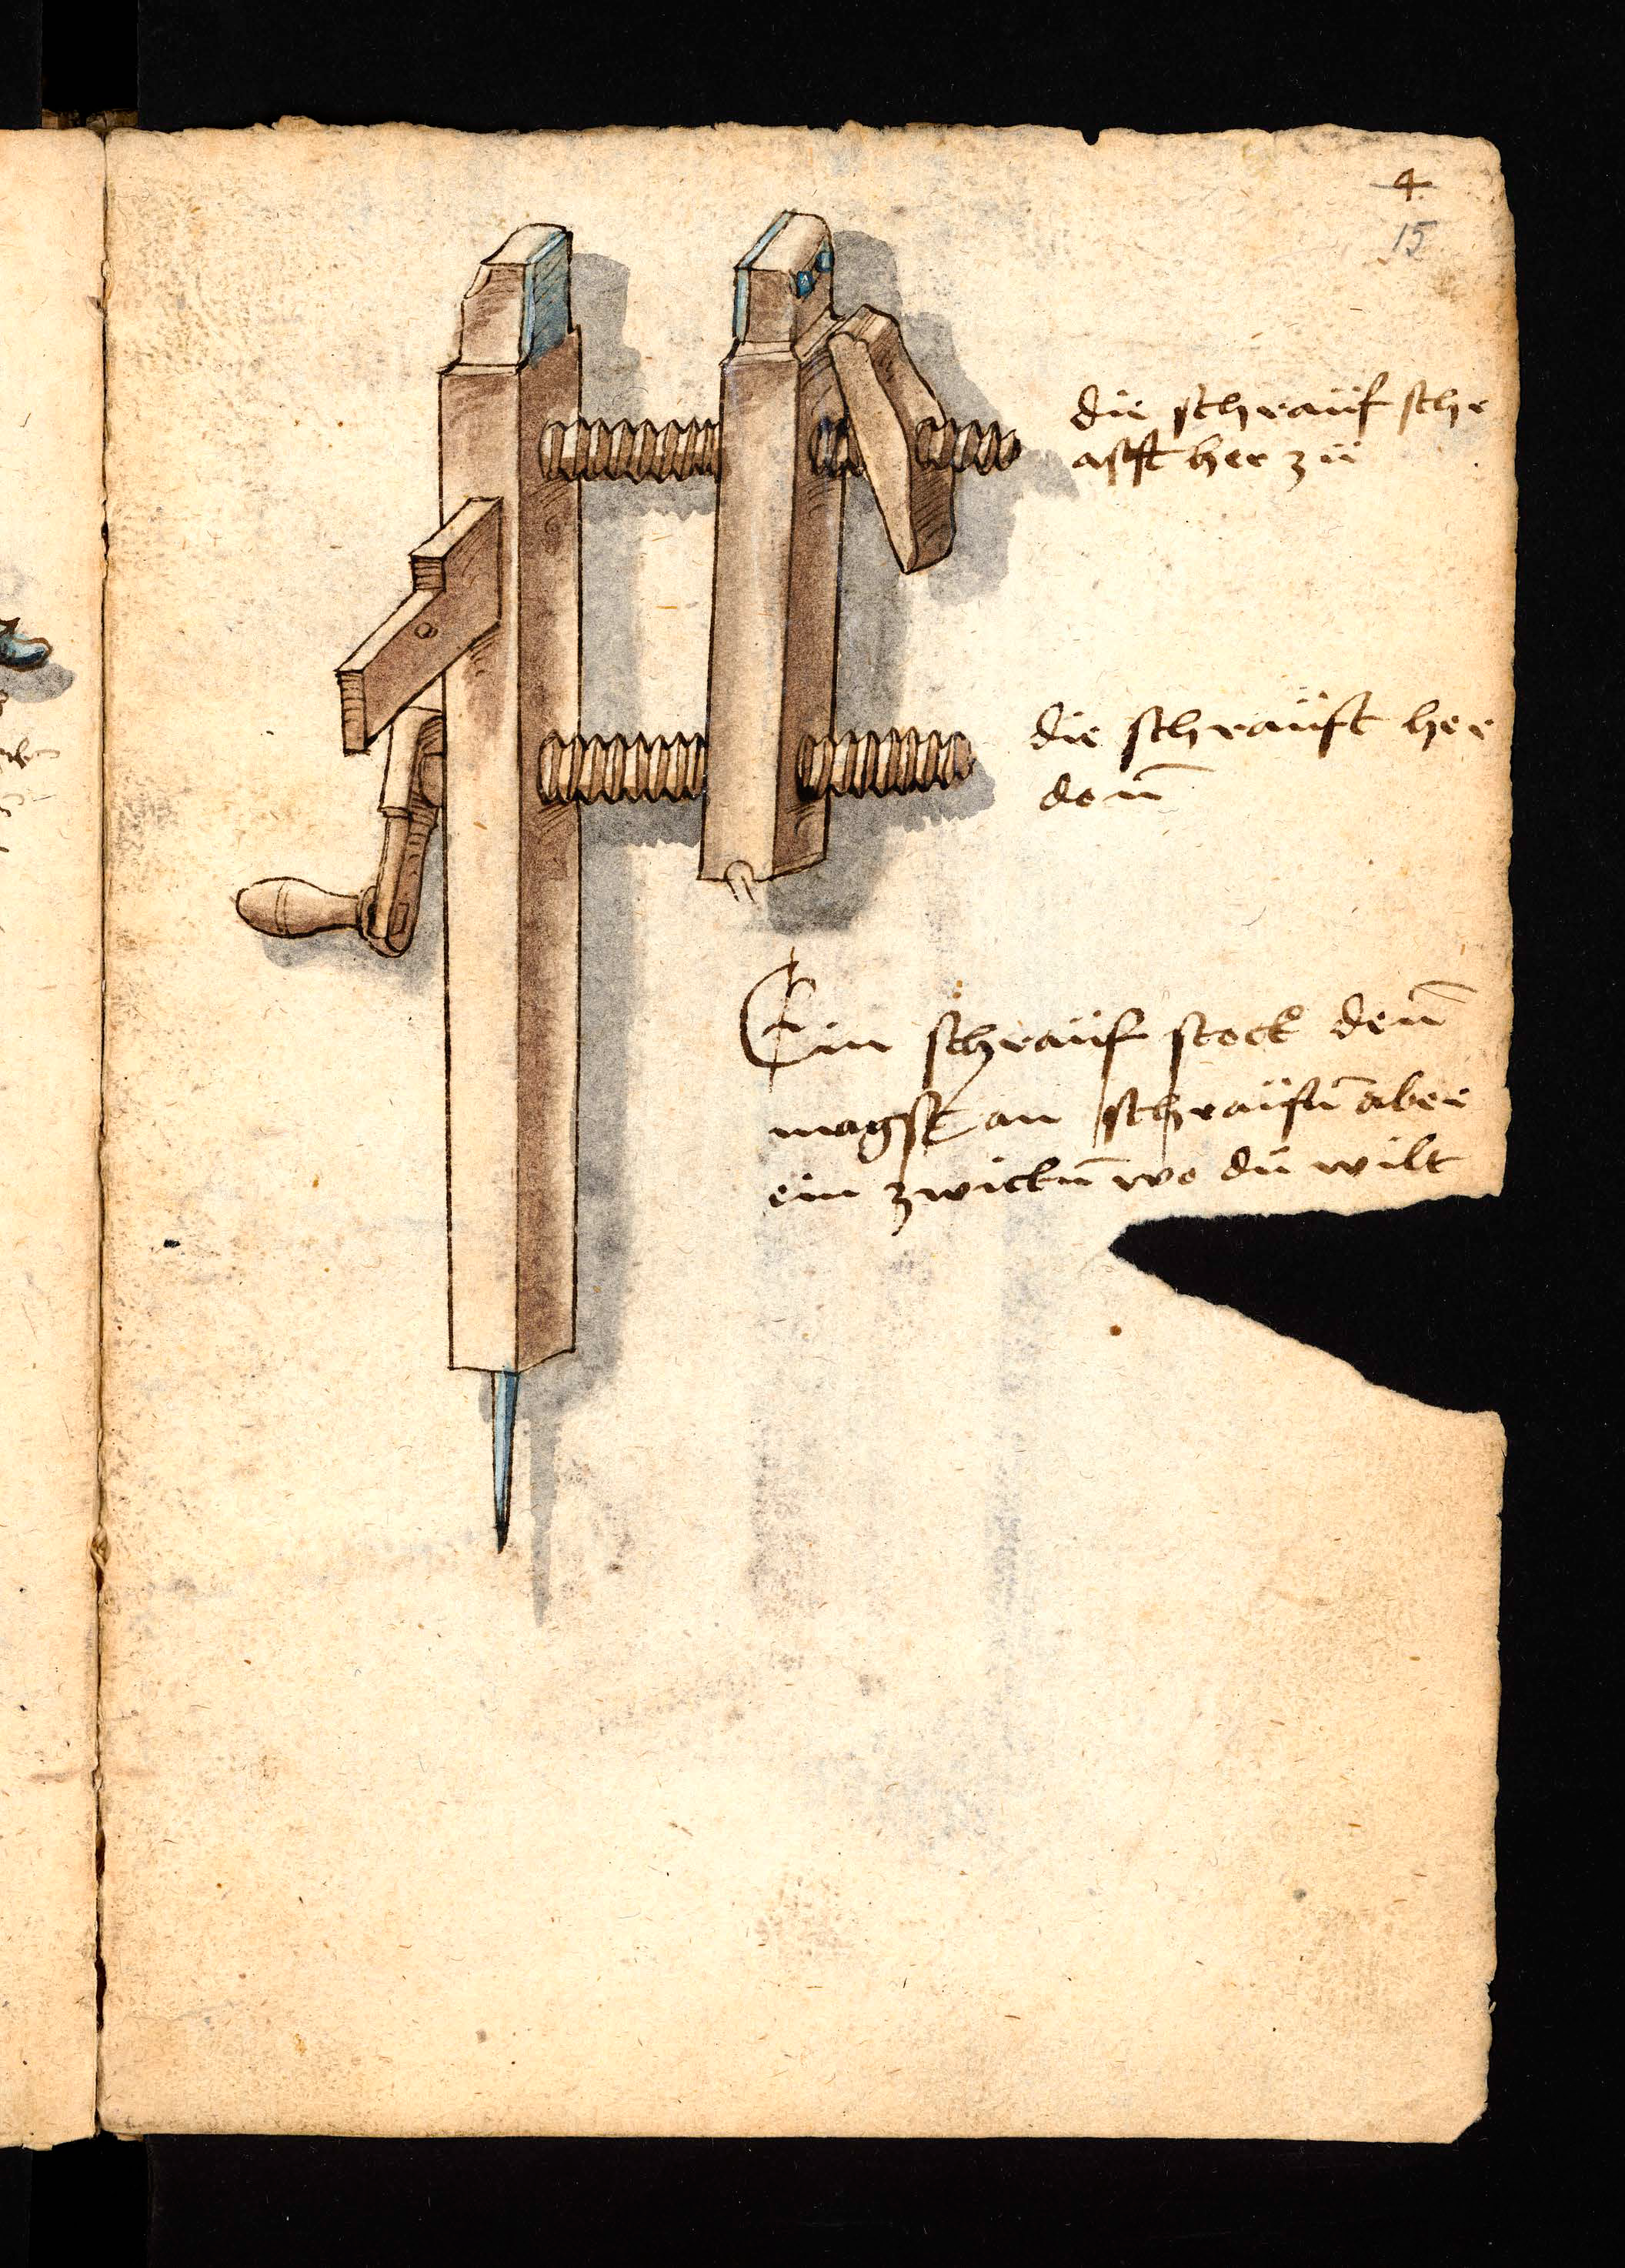 4
15
die schrauf sche
afft her zu
die schrauft her
don̄
Ein schrauf stock den̄
magst an schraufn̄ aber
ein zwickn̄ wo du wilt